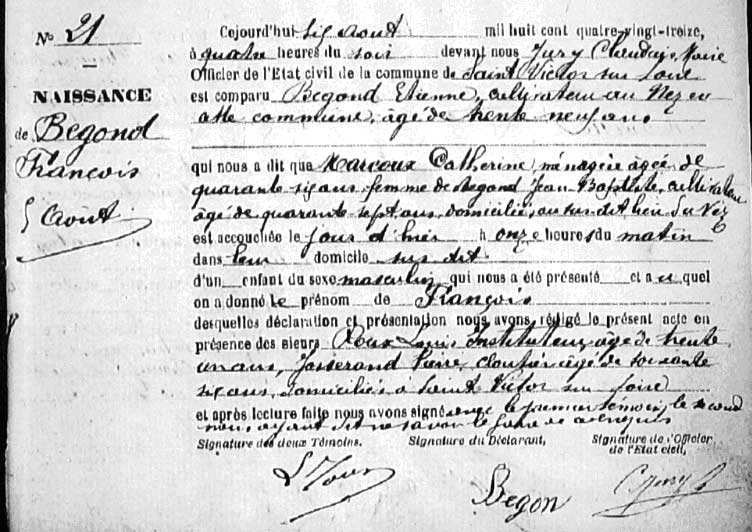 N° 21
NAISSANCE
de Begond
François
5 Août
Cejourd'hui six août mil huit cent quatre-vingt-treize,
à quatre heures du soir devant nous Jury Claudius Marie
Officier de l'Etat civil de la commune de Saint Victor sur Loire
est comparu Begond Etienne, cultivateur au Vez en
cette commune, âgé de trente neuf ans
qui nous a dit que Marcoux Catherine, ménagère âgée de
quarante six ans femme de Begond Jean Baptiste, cultivateur
âgé de quarante sept ans, domiciliés, au sus dit lieu du Vez
est accouchée le jour d'hier à onze heures du matin
dans leur domicile sus dit
d'un enfant du sexe masculin qui nous a été présenté et au quel
on a donné le prénom de François
desquelles déclaration et présentation nous avons rédigé le présent acte en
présence des sieurs Roux Louis Instituteur, âgé de trente
un ans, Josserand Pierre, cloutier âgé de soixante
six ans, domiciliés à Saint Victor sur Loire
et après lecture faite nous avons signé avec le premier témoin, le second
nous ayant dit ne savoir le faire de ce requis
Signature des deux Témoins. Signature du Déclarant, Signature de l'Officier
de l'Etat civil,
L Roux
Begon
C Jury